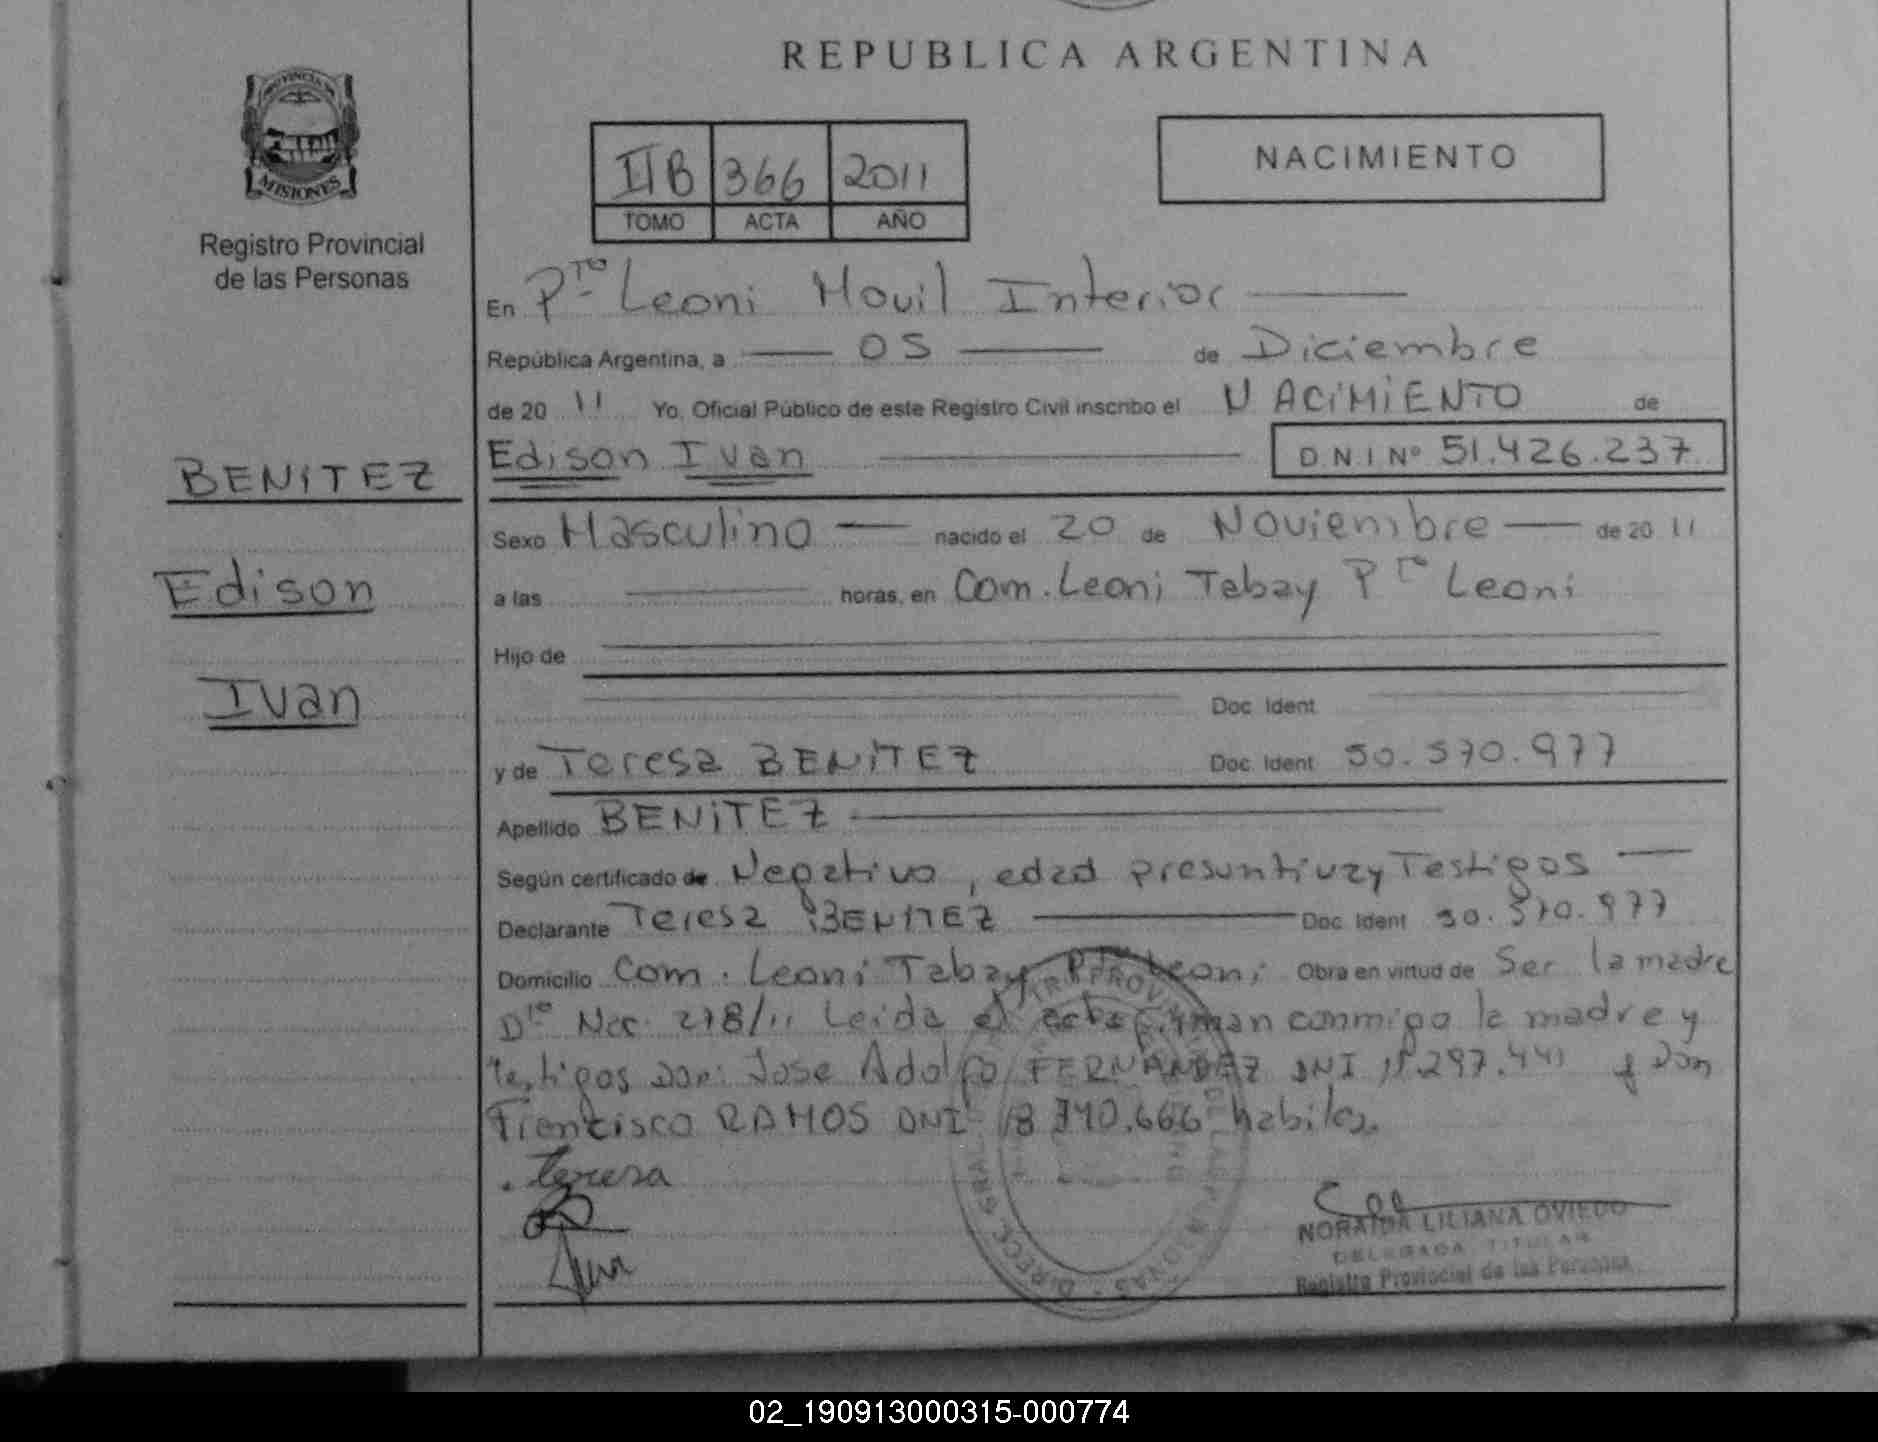 REPUBLICA ARGENTINA
PROVINCIA DE
MISIONES
Registro Provincial
de las Personas
BENITEZ
Edison
Ivan
IIB 366 2011
TOMO ACTA AÑO
NACIMIENTO
En Pto Leoni Movil Interior
República Argentina, a 05 de Diciembre
de 20 11 Yo, Oficial Público de este Registro Civil inscribo el NACIMIENTO de
Edison Ivan D.N.I Nº 51.426.237
Sexo Masculino nacido el 20 de Noviembre de 20 11
a las horas, en Com. Leoni Tabay Pto Leoni
Hijo de
Doc. Ident
y de Teresa BENITEZ Doc. Ident 50.570.977
Apellido BENITEZ
Según certificado de Negativo, edad presuntiva y Testigos
Declarante Teresa BENITEZ Doc. Ident 50.570.977
Domicilio Com. Leoni Tabay Pto Leoni Obra en virtud de Ser la madre
Dto Nac. 278/11 Leida el acta firman conmigo la madre y
testigos Don: Jose Adolfo FERNANDEZ DNI y Don
Francisco RAMOS DNI 18 740.666 habiles.
Teresa
NORAIDA LILIANA OVIEDO
DELEGADA TITULAR
Registro Provincial de las Personas
02_190913000315-000774